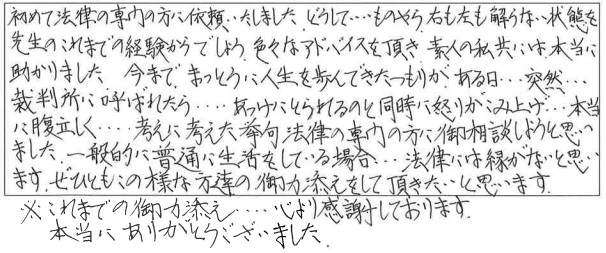 初めて法律の専門の方に依頼‥たしました どうして…ものやら右も左も解らない状態を
先生のこれまでの経験からでしょう 色々なアドバイスを頂き 素人の私共には本当に
助かりました 今まで まっとうに人生を歩んできたつもりが ある日…突然…
裁判所に呼ばれたら‥‥ あっけにとられるのと同時に怒りがこみ上げ…本当
に腹立しく‥‥考えに考えた挙句 法律の専門の方に御相談しようと思い
ました。一般的に普通に生活をしている場合…法律には縁がないと思い
ます。ぜひともこの様な方達の御力添えをして頂きた‥と思います
※これまでの御力添え‥‥心より感謝しております。
本当に ありがとうございました。